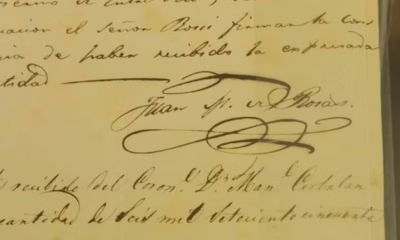 nacion el señor Rossi firman la cons
ia de haber recibido la expresada
tidad
Juan M. de Rosas.
recibido del Coron.l D.n Man.l Corbalan
cantidad de seis mil setecientos cincuenta